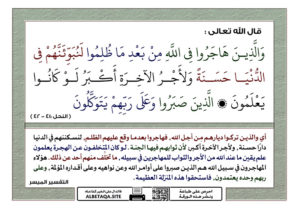 قال الله تعالى :
وَالَّذِينَ هَاجَرُوا فِي اللَّهِ مِنْ بَعْدِ مَا ظُلِمُوا لَنُبَوِّئَنَّهُمْ فِي
الدُّنْيَا حَسَنَةً وَلَأَجْرُ الْآخِرَةِ أَكْبَرُ لَوْ كَانُوا
يَعْلَمُونَ ۞ الَّذِينَ صَبَرُوا وَعَلَى رَبِّهِمْ يَتَوَكَّلُونَ
(النحل: ٤١ - ٤٢)
أي والذين تركوا ديارهم من أجل الله، فهاجروا بعدما وقع عليهم الظلم، لنسكننهم في الدنيا
دارًا حسنة، ولأجر الآخرة أكبر؛ لأن ثوابهم فيها الجنة. لو كان المتخلفون عن الهجرة يعلمون
علم يقين ما عند الله من الأجر والثواب للمهاجرين في سبيله، ما تخلف منهم أحد عن ذلك. هؤلاء
المهاجرون في سبيل الله هم الذين صبروا على أوامر الله وعن نواهيه وعلى أقداره المؤلمة، وعلى
ربهم وحده يعتمدون، فاستحقوا هذه المنزلة العظيمة.
التفسير الميسر
احرص على طباعة
ونشر هذه الورقة
ALBETAQA.SITE